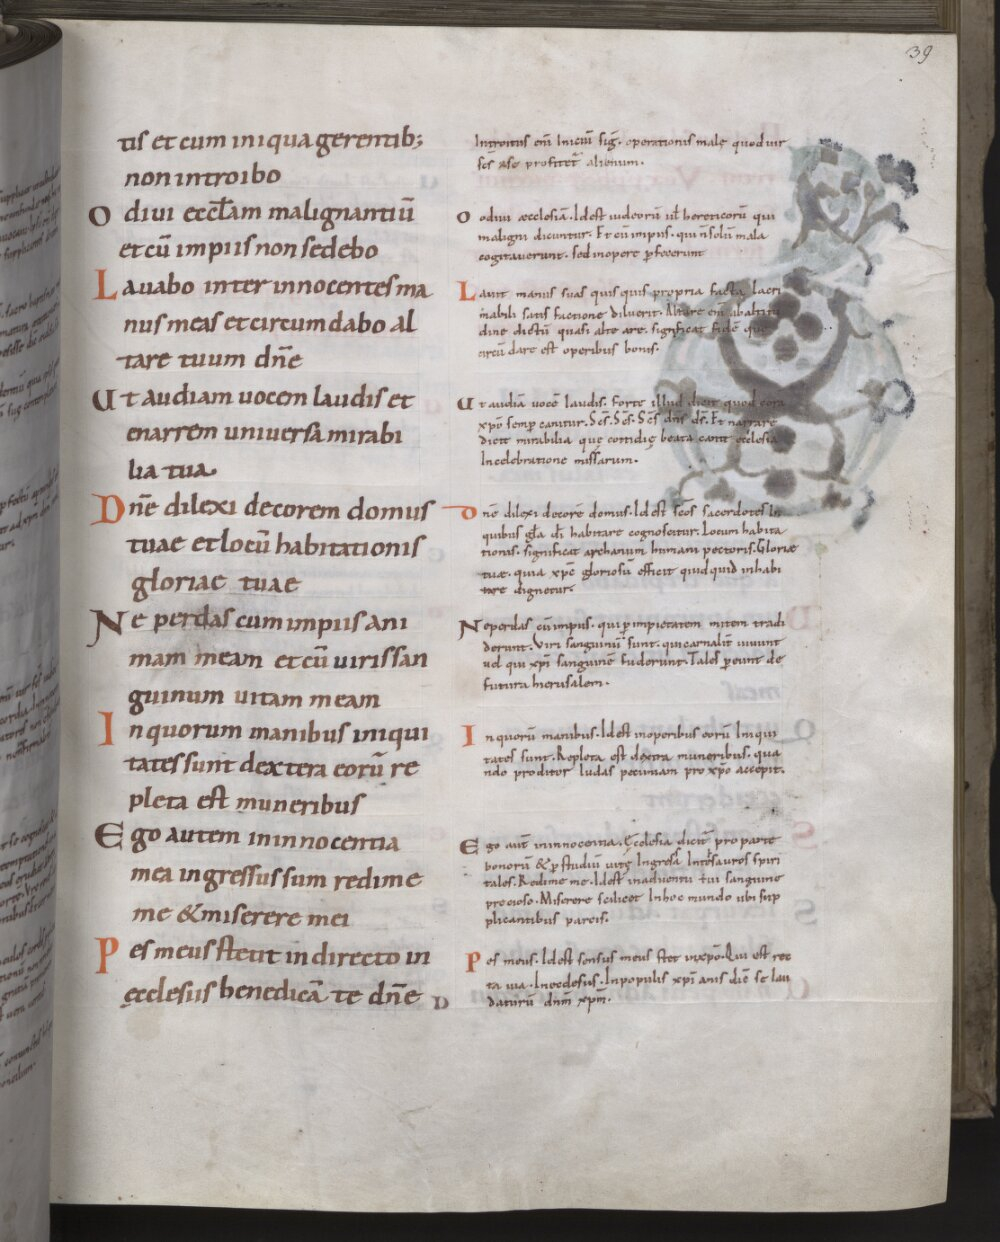 39
tis et cum iniqua gerentib;
non introibo
Odiui eccłam malignantiū
et cū impiis non sedebo
Lauabo inter innocentes ma
nus meas et circumdabo al
tare tuum dn̄e
Ut audiam uocem laudis et
enarrem uniuersa mirabi
lia tua.
Dn̄e dilexi decorem domus
tuae et locū habitationis
gloriae tuae
Ne perdas cum impiis ani
mam meam et cū uiris san
guinum uitam meam
In quorum manibus iniqui
tates sunt dextera eorū re
pleta est muneribus
Ego autem in innocentia
mea ingressus sum redime
me & miserere mei
Pes meus stetit in directo in
ęcclesiis benedicā te dn̄e
Introitus eni͞ iniciū sig̅. operationis malę quod uir
sc̄s a se profitet̄ alienum.
Odiui æcclesiā. Id est iudeorū uł hereticorū qui
maligni dicuntur. Et cū impiis. qui n̄ solū mala
cogitauerunt. sed in opere ꝑfecerunt
Lauit manus suas quisquis propria facta lacri
mabili satisfactione diluerit. Altare eni͞ ab altitu
dine dictū quasi alte are. significat fidē quę
circū dare est operibus bonis.
Ut audiā uocē laudis. Forte illud dicit quod cora
xp̄o semp̱ canitur. Sc̄s. Sc̄s. Sc̄s dn̄s ds̄. Et narrare
dicit mirabilia quę cottidię beata canit ecclesia
In celebratione missarum.
Dn̄e dilexi decorē domus. Id est sc̄os sacerdotes in
quibus gła dī habitare cognoscitur. Locum habita
tionis. significat archanum humani pectoris. Gloriæ
tuæ. quia xp̄c gloriosū efficit quidquid inhabi
tare dignetur.
Ne perdas cū impiis. qui ꝑ impietatem mitem tradi
derunt. Viri sanguinū sunt. qui carnalit̄ uiuunt
uel qui xp̄i sanguinē fuderunt. Tales ꝑeunt de
futura hierusalem.
In quorū manibus. Id est in operibus eorū Iniqui
tates sunt. Repleta est dextra muneribus. qua
ndo proditor Iudas pecuniam pro xp̄o accepit.
Ego aut̄ in innocentia. Ęcclesia dicit̄ pro parte
bonorū & ꝑ studiū uitę Ingressa In thesauros spiri
tales. Redime me. Id est in aduentu tui sanguine
precioso. Miserere scilicet In hoc mundo ubi sup
plicantibus parcis.
Pes meus. Id est sensus meus stet in xp̄o. Qui est rec
ta uia. In ecclesiis. In populis xp̄i anis diē se lau
D daturū dnm̄ xp̄m.